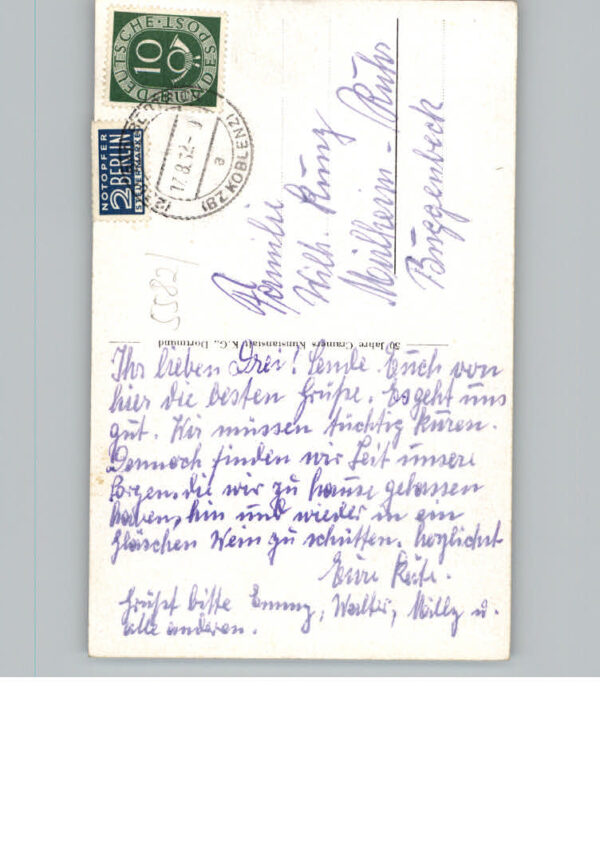 DEUTSCHE BUNDESPOST
10
NOTOPFER
2 BERLIN
STEUERMARKE
KOBLENZ
17.8.52
a
5582/
Familie
Wilh. Kunz
Mülheim-Ruhr
Buggenbeck
50 Jahre Cramers Kunstanstalt K.G., Dortmund
Ihr lieben Drei! Sende Euch von
hier die besten Grüße. Es geht uns
gut. Wir müssen tüchtig kuren.
Dennoch finden wir Zeit unsere
Sorgen, die wir zu hause gelassen
haben, hin und wieder in ein
Gläschen Wein zu schütten. Herzlichst
Eure Käte.
Grüßt bitte Emmy, Walter, Milly u.
alle anderen.